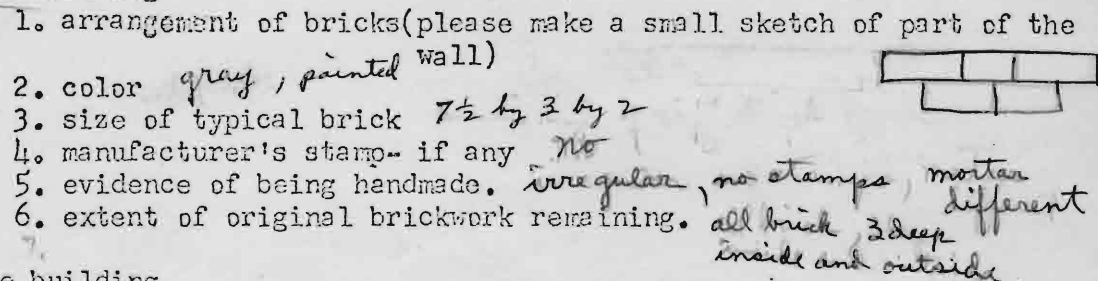 1. arrangement of bricks(please make a small sketch of part of the
wall)
2. color gray, painted
3. size of typical brick 7½ by 3 by 2
4. manufacturer's stamp- if any no
5. evidence of being handmade. irregular, no stamps, mortar
different
6. extent of original brickwork remaining. all brick, 3 deep
inside and outside
building